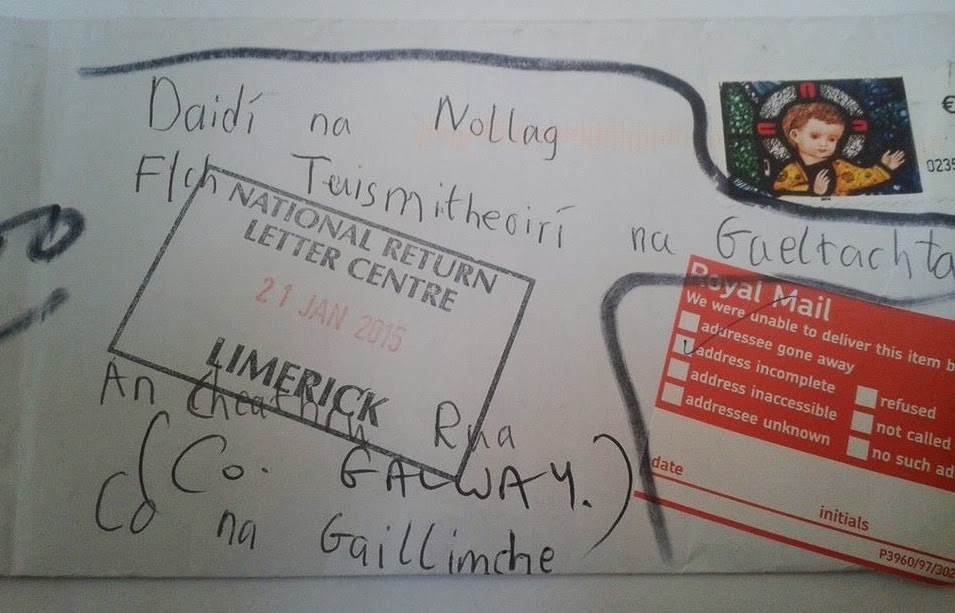 Daidí na Nollag
F/ch Tuismitheoirí na Gaeltachta
An Cheathrú Rua
(Co. GALWAY.)
Co na Gaillimhe
NATIONAL RETURN
LETTER CENTRE
21 JAN 2015
LIMERICK
€
023
Royal Mail
We were unable to deliver this item b
addressee gone away
address incomplete
address inaccessible
addressee unknown
refused
not called
no such ad
date
initials
P3960/97/302